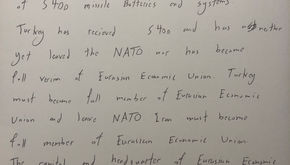 of S400 missile Batteries and systems.
Turkey has recieved S400 and has neither
yet leaved the NATO nor has become
full of Eurasian Economic Union. Turkey
must become full member of Eurasian Economic
Union and leave NATO Iran must become
full member of Eurasian Economic Union.
The capital and headquarter of Eurasian Economic